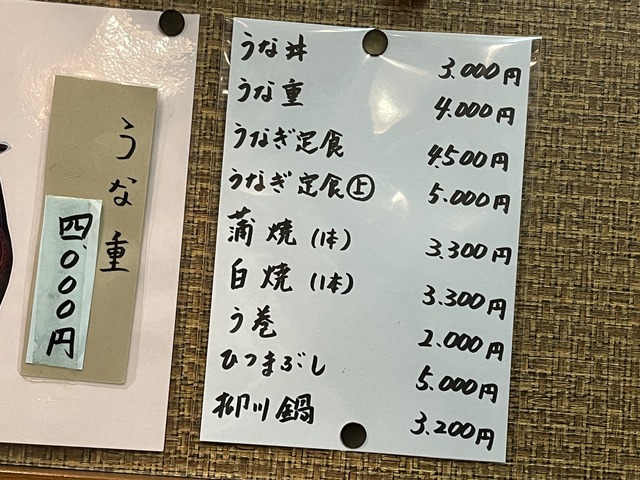 うな重
四,000円
うな丼 3.000円
うな重 4.000円
うなぎ定食 4500円
うなぎ定食㊤ 5.000円
蒲焼(1本) 3.300円
白焼(1本) 3.300円
う巻 2.000円
ひつまぶし 5.000円
柳川鍋 3.200円